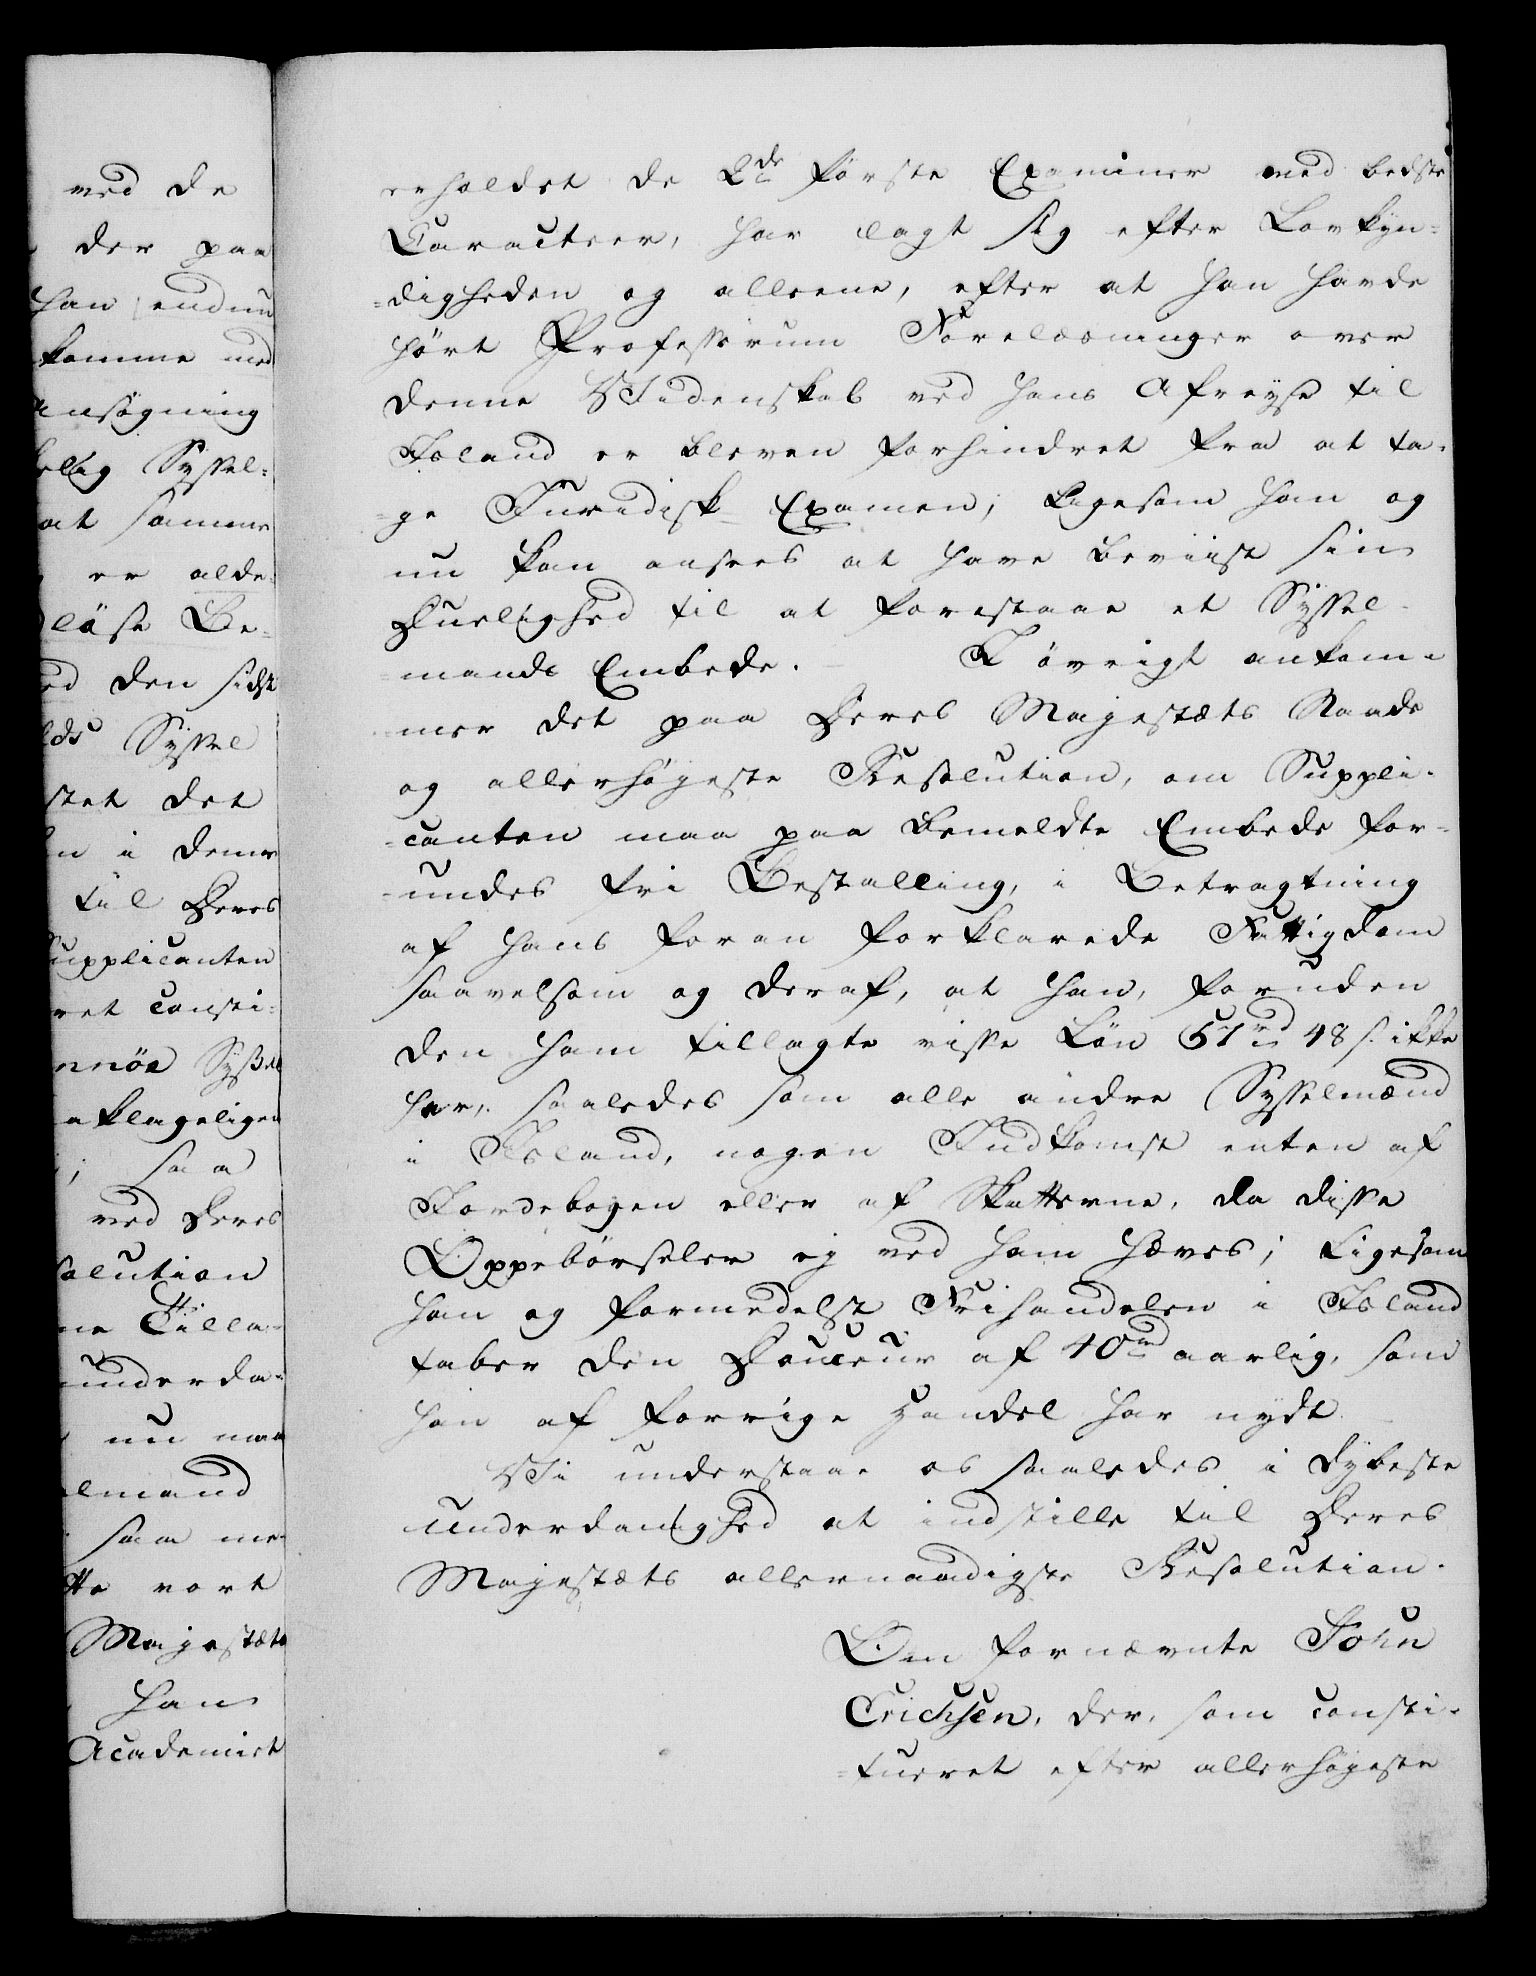 ved de
der paa
han endnu
komme med
Ansøgning
Syssel-
at samme
er alde-
løse Be-
ed den sidst
Syssel
stet det
i denne
til Deres
Supplicanten
ret consti-
nnöe Syssel
aklageligen
saa
ved Deres
solution
ne Tilla-
underda-
nu maa
elmand
saa me-
tte vort
Majestæts
Han
Academiet
erholdet de 2de første Examiner med bedste
Caracteer, har lagt sig efter Lovkyn-
-digheden og alleene, efter at han havde
hørt Professorum Forelæsninger over
denne Videnskab ved hans Afreyse til
Island er bleven forhindret fra at ta-
-ge Juridisk Examen; ligesom han og
nu kan ansees at have beviist sin
Duelighed til at forestaae et Syssel-
-mands Embede. I øvrigt ankom-
-mer det paa Deres Majestæts Naade
og allerhøyeste Resolution, om Suppli-
-canten maa paa bemeldte Embede for-
-undes fri Bestalling, i Betragtning
af hans foran forklarede Fattigdom
saavelsom og deraf, at han, foruden
den ham tillagte visse Løn 67 rd 48 s. ikke
har, saaledes som alle andre Sysselmænd
i Island, nogen Indkomst enten af
Jordebogen eller af Skatterne, da disse
Oppebørseler ej ved ham hæves; Ligesom
han og formedelst Frihandelen i Island
taber den Douceur af 40 rd aarlig, som
han af forrige Handel har nydt
Vi understaae os saaledes i dybeste
Underdanighed at indstille til Deres
Majestæts allernaadigste Resolution.
Om fornævnte John
Erichsen, der, som consti-
-tueret efter allerhøyeste